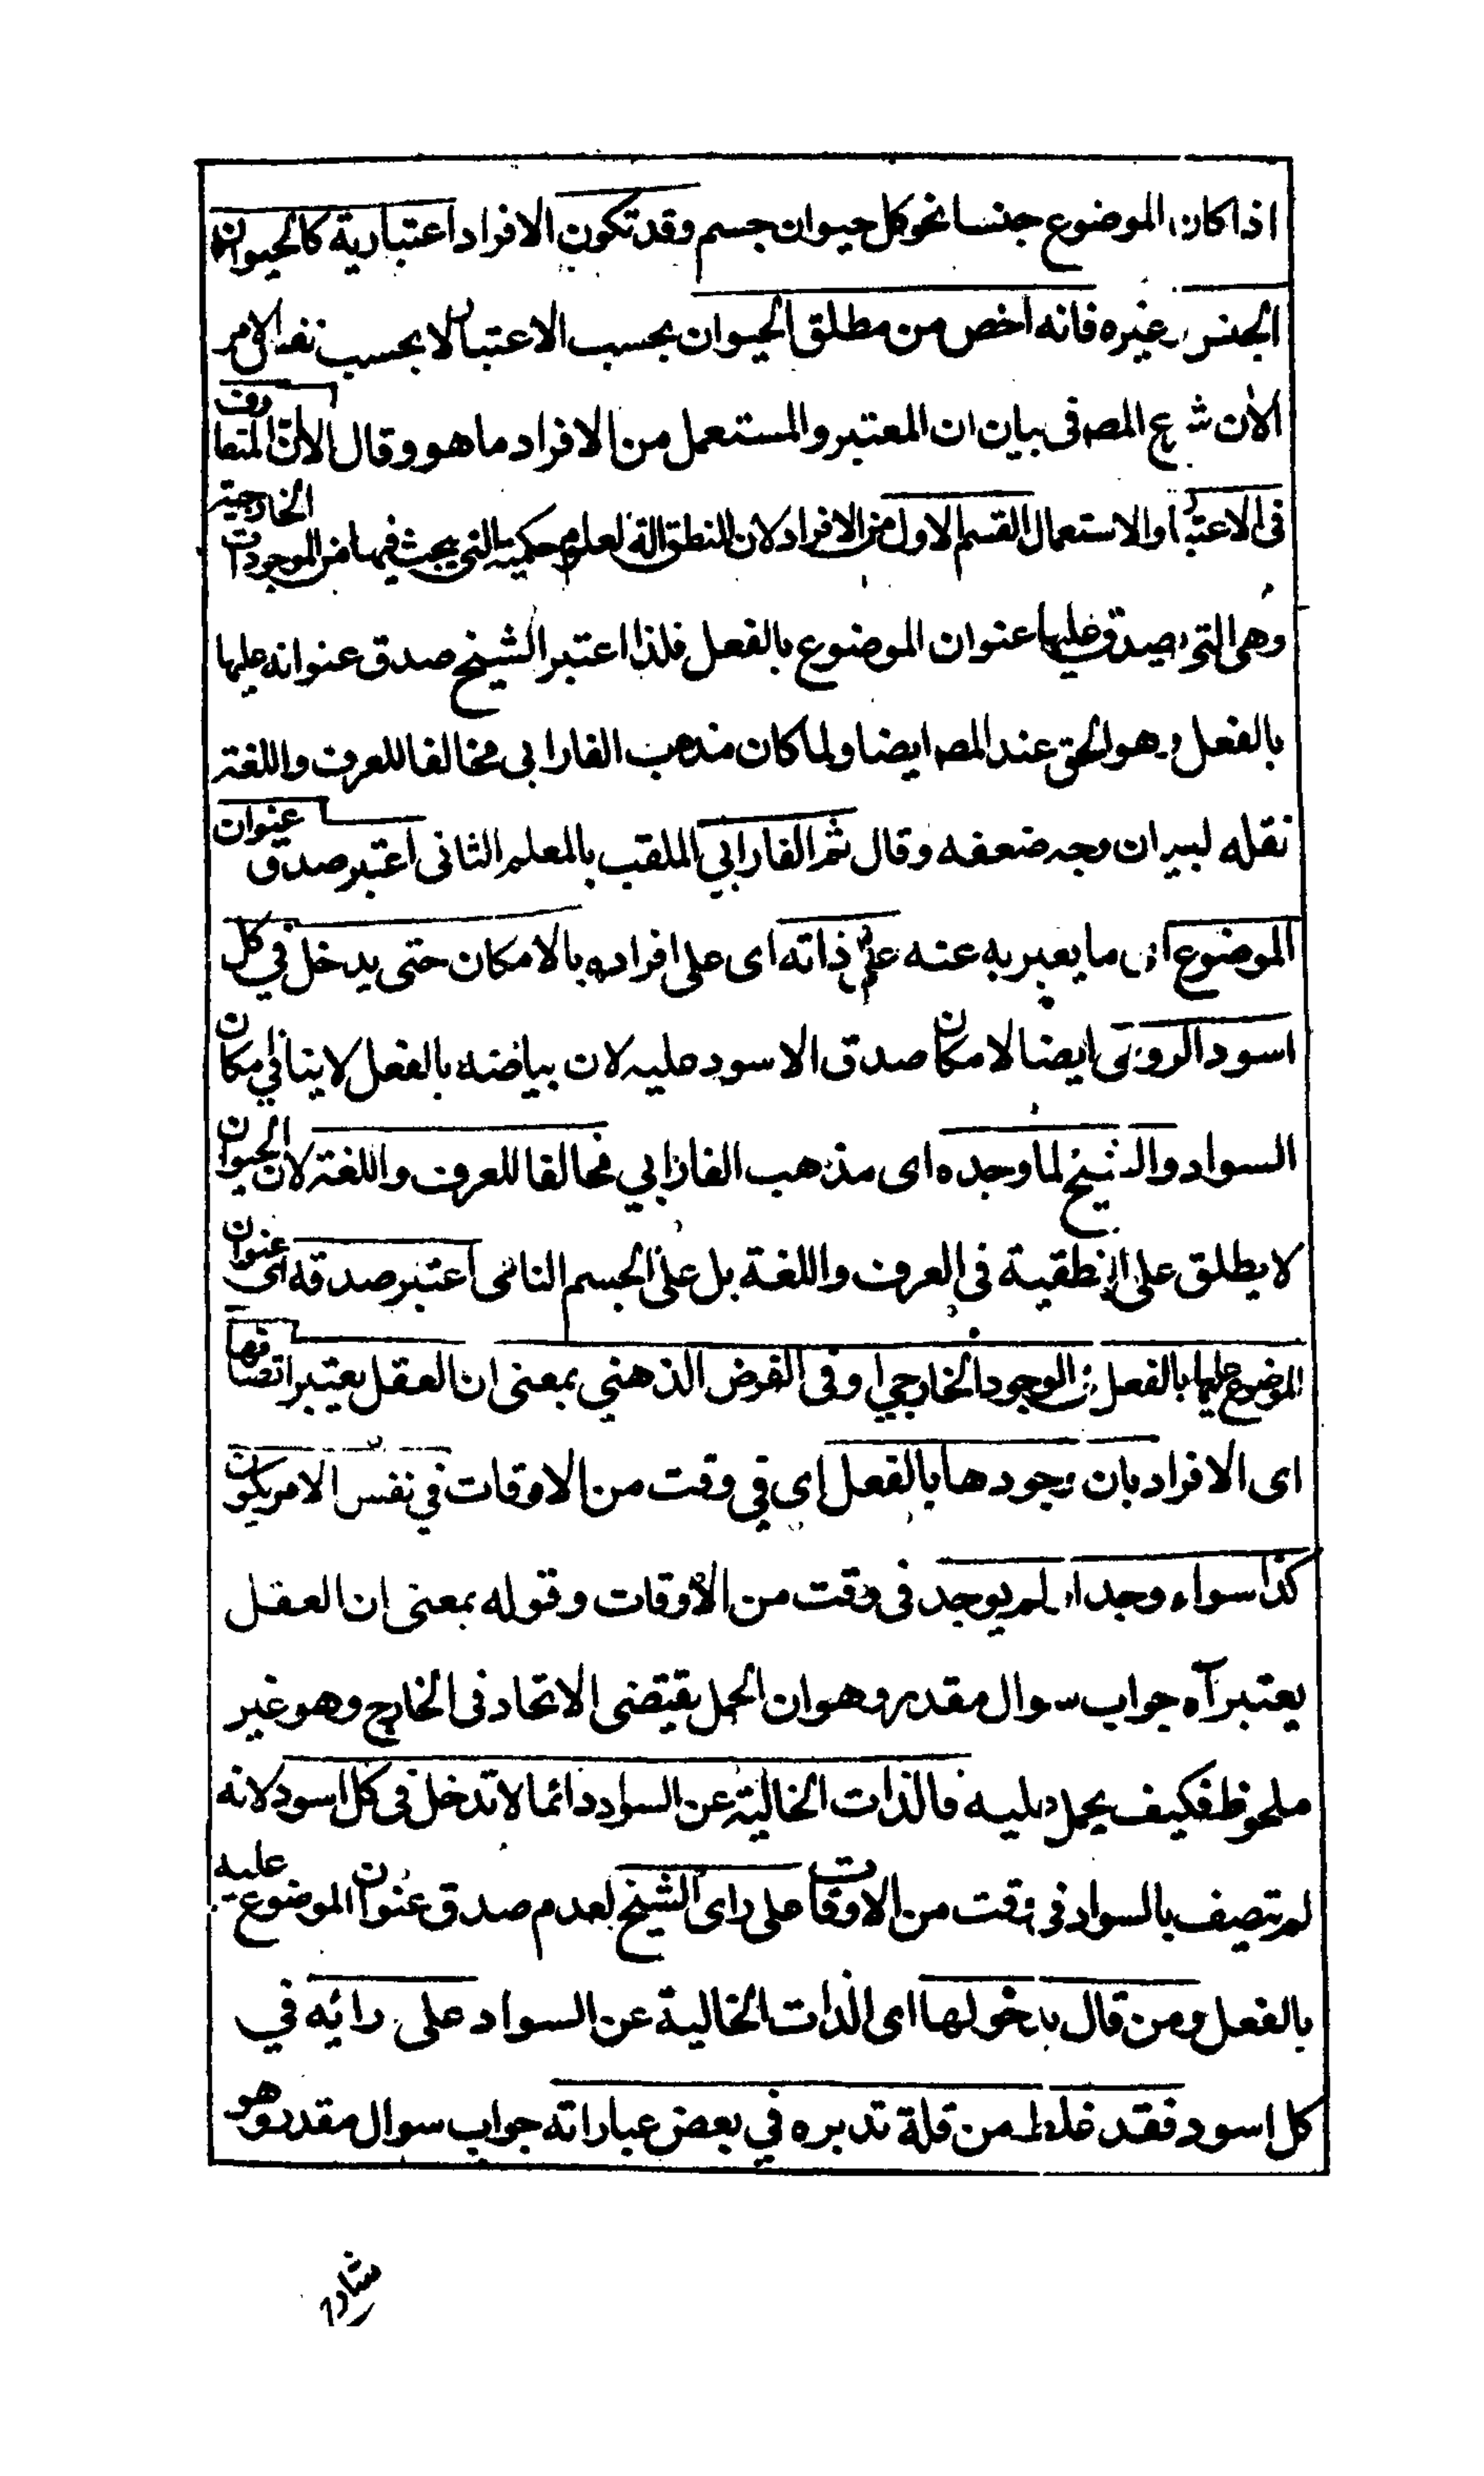 اذا كان الموضوع جنسا نحو كل حيوان جسم وقد تكون الافراد اعتبارية كالحيوان
الجنس وغيره فانه اخص من مطلق الحيوان بحسب الاعتبار لا بحسب نفس الامر
الان شرع المصـ فى بيان ان المعتبر والمستعمل من الافراد ما هو وقال الا ان المتعارف
فى الاعتبار والاستعمال القسم الاول من الافراد لان المنطق آلة لعلوم حكمية التى يبحث فيها من الموجودات الخارجية
وهى التى يصدق عليها عنوان الموضوع بالفعل فلذا اعتبر الشيخ صدق عنوانه عليها
بالفعل وهو الحق عند المصـ ايضا ولما كان مذهب الفارابى مخالفا للعرف واللغة
نقله لبيان وجه ضعفه وقال ثم الفارابي الملقب بالمعلم الثانى اعتبر صدق عنوان
الموضوع اى ما يعبر به عنه على ذاته اى على افراده بالامكان حتى يدخل في كل
اسود الرومى ايضا لامكان صدق الاسود عليه لان بياضه بالفعل لا ينافي امكان
السواد والشيخ لما وجده اى مذهب الفارابي مخالفا للعرف واللغة لان الحيوان
لا يطلق على النطفة فى العرف واللغة بل على الجسم النامى اعتبر صدقه اى عنوان
الموضوع عليها بالفعل فى الوجود الخارجي او فى الفرض الذهني بمعنى ان العقل يعتبر اتصافها
اى الافراد بان وجودها بالفعل اى في وقت من الاوقات في نفس الامر يكون
كذا سواء وجد او لم يوجد فى وقت من الاوقات وقوله بمعنى ان العقل
يعتبر آه جواب سوال مقدر وهو ان الحمل يقتضى الاتحاد فى الخارج وهو غير
ملحوظ فكيف يحمل عليه فالذات الخالية عن السواد دائما لا تدخل فى كل اسود لانه
لم تتصف بالسواد فى وقت من الاوقات على راى الشيخ لعدم صدق عنوان الموضوع عليه
بالفعل ومن قال بدخولها اى الذات الخالية عن السواد على رائه في
كل اسود فقد غلط من قلة تدبره في بعض عباراته جواب سوال مقدر وهو